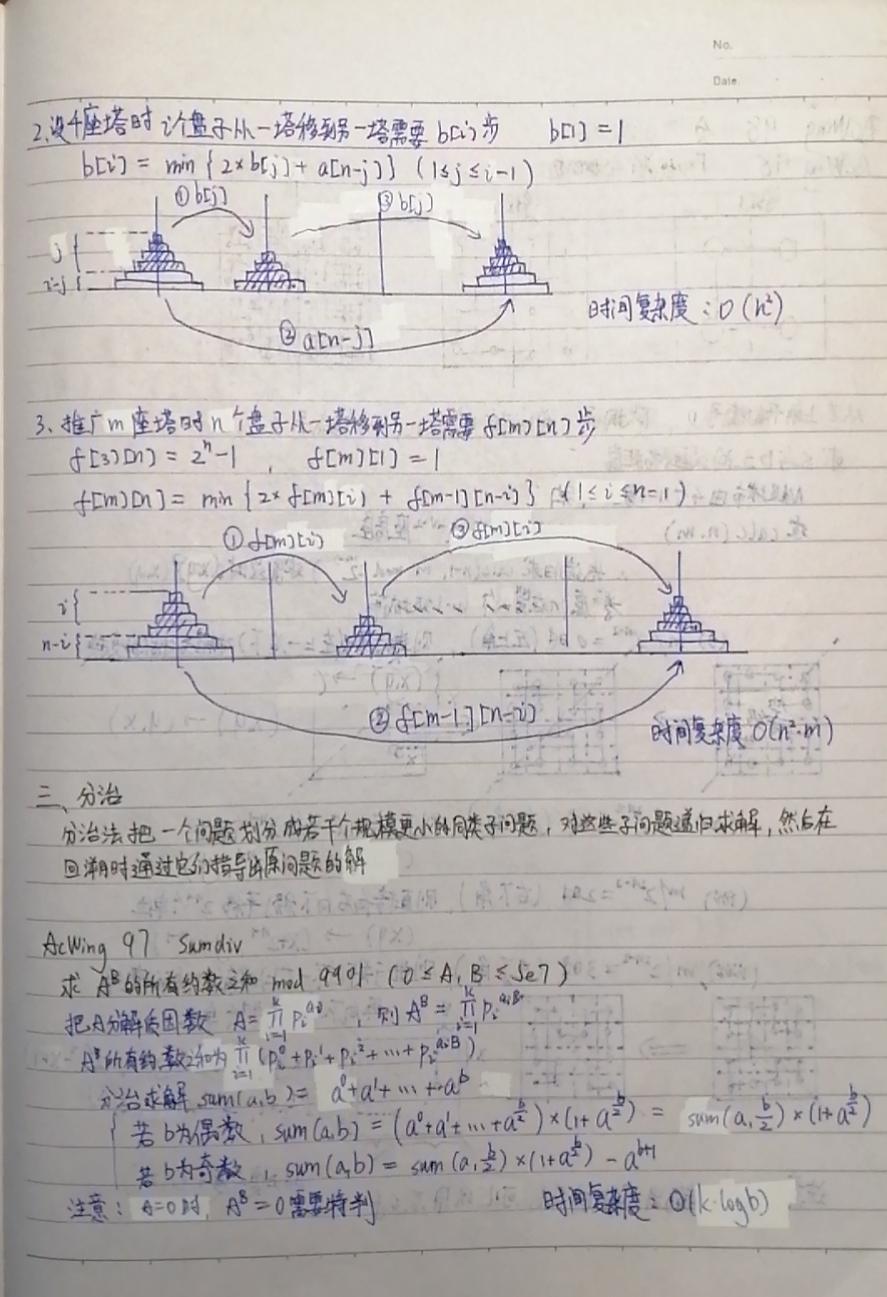 No.
Date.
2、设4座塔时 i个盘子从一塔移到另一塔需要 b[i] 步 b[1] = 1
b[i] = min { 2×b[j] + a[n-j] } (1≤j≤i-1)
① b[j] ③ b[j]
j
i-j
② a[n-j]
时间复杂度:O(n²)
3、推广m座塔时n个盘子从一塔移到另一塔需要 f[m][n] 步
f[3][n] = 2ⁿ-1 , f[m][1] = 1
f[m][n] = min { 2× f[m][i] + f[m-1][n-i] } (1≤i≤n-1)
① f[m][i] ③ f[m][i]
i
n-i
② f[m-1][n-i]
时间复杂度 O(n²·m)
三、分治
分治法把一个问题划分成若干个规模更小的同类子问题,对这些子问题递归求解,然后在
回溯时通过它们推导出原问题的解
AcWing 97 Sumdiv
求 A^B 的所有约数之和 mod 9901 (0≤A,B≤5e7)
把A分解质因数 A= ∏_{i=1}^{k} p_i^{a_i} , 则 A^B = ∏_{i=1}^{k} p_i^{a_i B}
A^B 所有约数之和为 ∏_{i=1}^{k} (p_i^0 + p_i^1 + p_i^2 + … + p_i^{a_i B})
分治求解 sum(a,b) = a^0 + a^1 + … + a^b
若b为偶数, sum(a,b) = (a^0 + a^1 + … + a^{b/2}) × (1+a^{b/2}) = sum(a, b/2) × (1+a^{b/2})
若b为奇数, sum(a,b) = sum(a, b/2) × (1+a^{b/2}) - a^{b+1}
注意: A=0时, A^B=0需要特判 时间复杂度:O(k·logb)